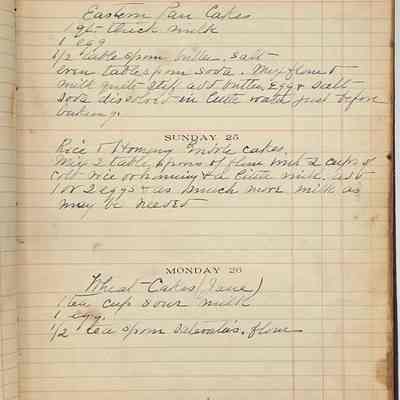 Eastern Pan Cakes
1 qt thick milk
1 egg
1/2 table spoon butter, salt
even tablespoon soda. Mix flour &
milk quite stiff add butter, Egg & salt
soda dissolved in little water just before
baking.
SUNDAY 25
Rice & Hominy Griddle cakes.
Mix 2 table spoons of flour with 2 cups of
cold rice or hominy & a little milk. add
1 or 2 eggs & as much more milk as
may be needed
MONDAY 26
Wheat Cakes (Jane)
1 tea cup sour milk
1 egg.
1/2 tea spoon salaratus. flour